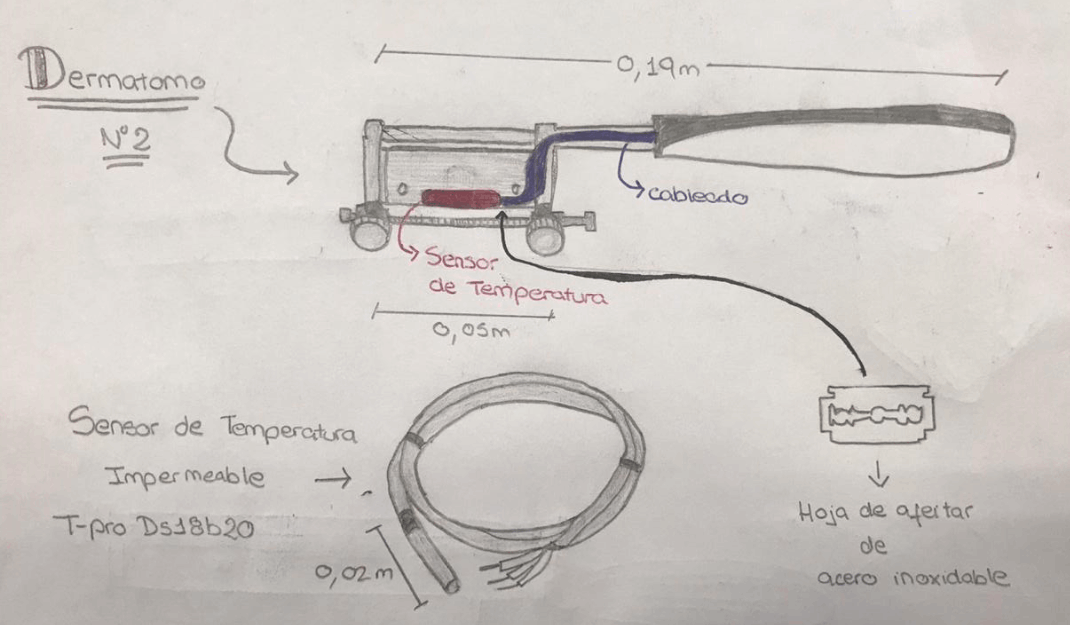 Dermatomo
N°2
0,19m
cableado
Sensor
de Temperatura
0,05m
Sensor de Temperatura
Impermeable
T-pro Ds18b20
0,02m
Hoja de afertar
de
acero inoxidable